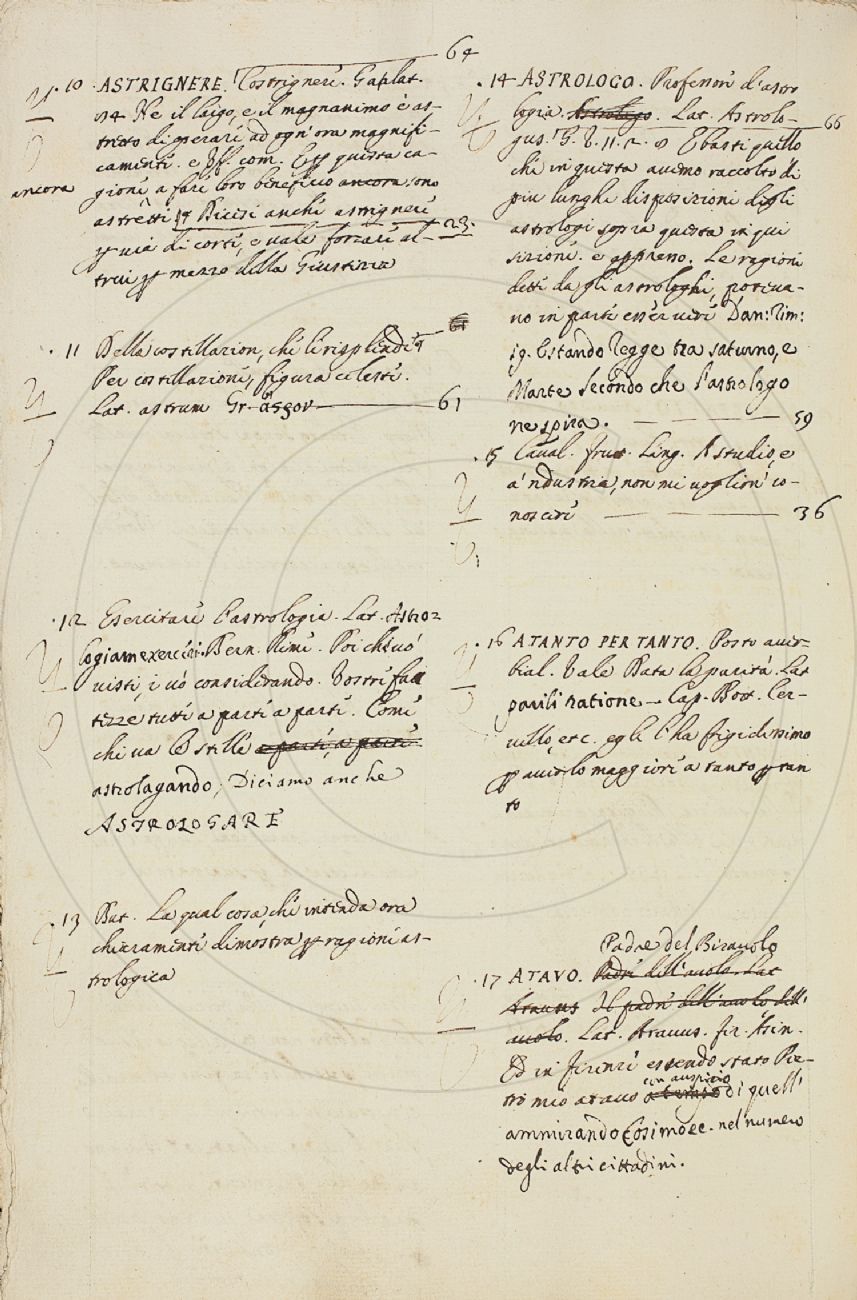 64
10 ASTRIGNERE. Costrignere. Galat.
94 Ne il largo, e il magnanimo è as-
tretto di operare ad ogn'ora magnifi-
camente. e Bf. com. E p questa ca-
ancora gione a fare loro beneficio ancora sono
astretti Dicesi anche astrignere 23
p via di corte, e vale forzare al-
trui p mezzo della Giustizia
11 Bella costillazion, che li risplende
Per costillazione, figura celeste.
Lat. astrum Gr. 61
12 Esercitare l'astrologia. Lat. Astro=
logiam exerceri. Bern. Rime. Poi ch'uò
visti, i' vò considerando. Vostre fat
tezze tutte a parte a parte. Come
chi va le stelle a parte, a parte
astrolagando, Diciamo anche
ASTROLOGARE
13 But. La qual cosa, che intenda ora
chiaramente dimostra p ragione as-
trologica
14 ASTROLOGO. Professore d'astro
logia. Astrologo. Lat. Astrolo- 66
gus. G. V. 11. 2. 9 E basti quello
che in questa avemo raccolto di
piu lunghe disposizioni degli
astrologi sopra questa inqui
sizione. e appreso. Le ragioni
dette da gli astrologhi, poteva-
no in parte esser vere Dan: Rim:
19. Estando legge tra saturno, e
Marte Secondo che l'astrolago
ne spira. 59
15 Caval. frut. Ling. Astudio, e
a'ndustria, non mi voglion' co-
noscere 36
16 ATANTO PER TANTO. Posto aver-
bial. Vale Data la parità. Lat
parili ratione - Cap. Bott. Cer-
vello, etc. egli l'ha frigidissimo
p averlo maggiore a tanto p tan
to
Padre del Bisavolo
17 ATAVO. Padre dell'avolo. Lat
Atavus Il padre dell'avolo dell'
avolo. Lat. Atavus. fir. Asin.
Ed in firenze essendo stato Pie-
con auspicio
tro mio atavo a tempo di quell'
ammirando Cosimo ec. nel numero
degli altri cittadini.